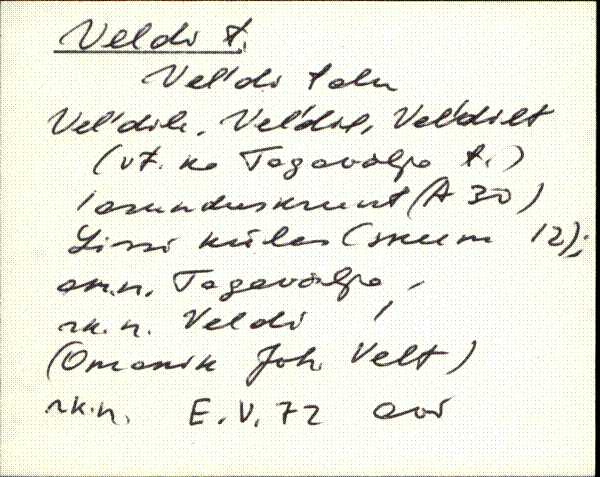 Veldi t.
Vel'di talu
Vel'dile, Vel'dil, Vel'dilt
(vt. ka Tagavälja t.)
asunduskrunt (A 30)
Lissi külas (skeem 12);
om.n. Tagavälja,
rk.n. Veldi
(Omanik Joh. Velt)
rk.n. E.V. 72